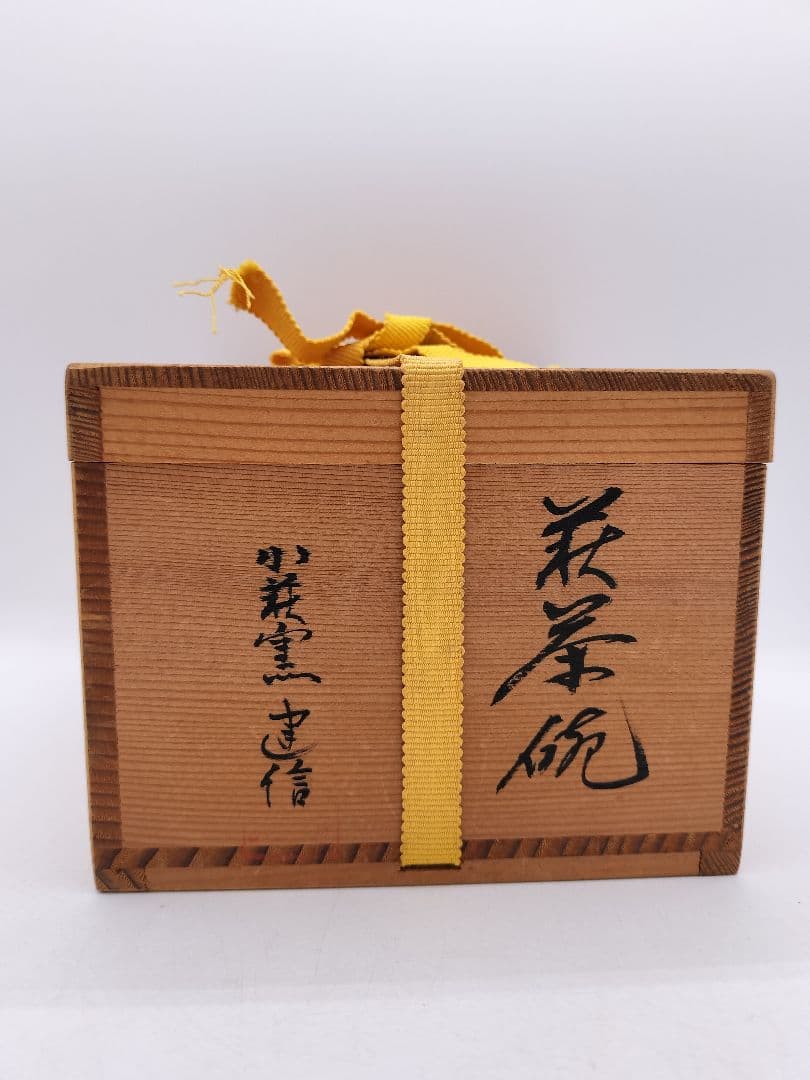 萩茶碗
小萩窯 建信